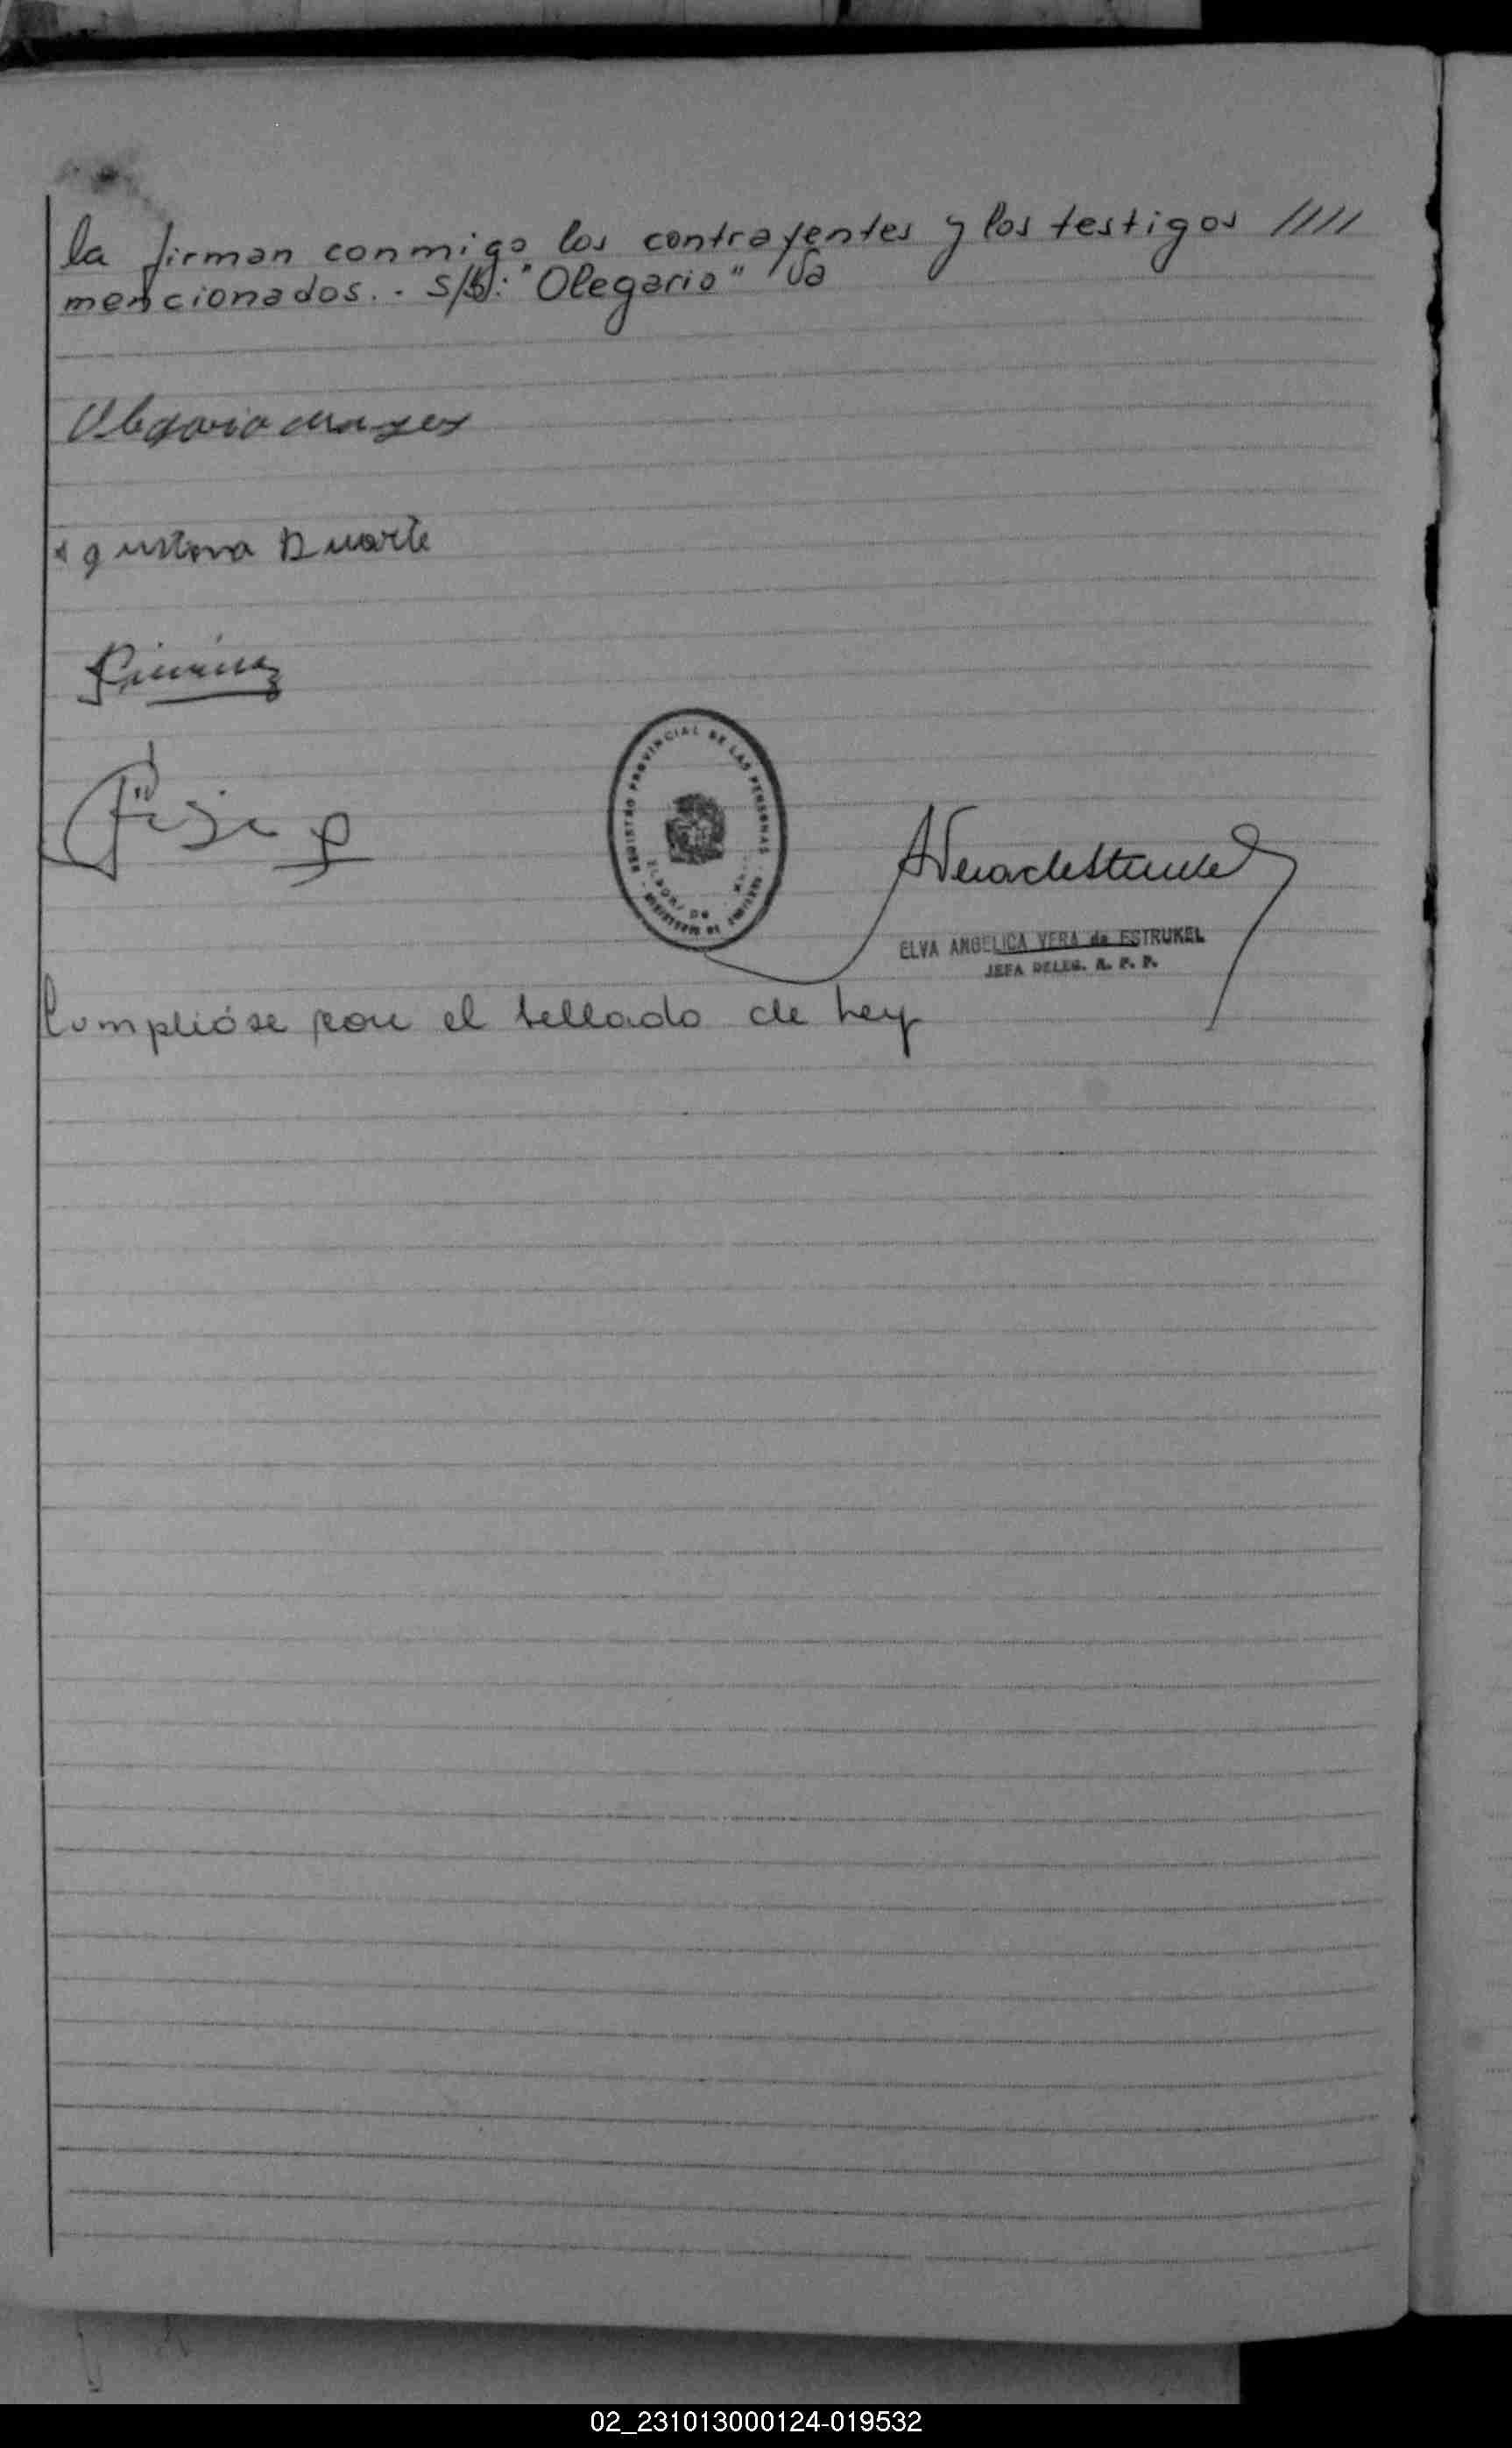 la firman conmigo los contrayentes y los testigos /////
mencionados. - S/b: "Olegario" Va
Olegario
Agustina Duarte
REGISTRO PROVINCIAL DE LAS PERSONAS
ELVA ANGELICA VERA de ESTRUKEL
JEFA DELEG. R. P. P.
Cumplióse con el sellado de Ley
02_231013000124-019532